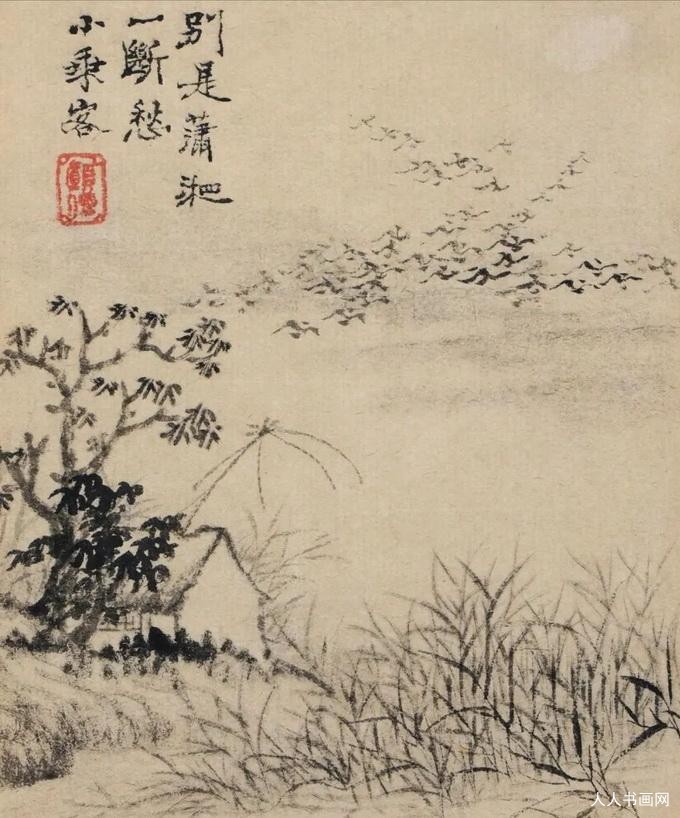 别是瀟湘
一斷愁
小乘客
人人书画网